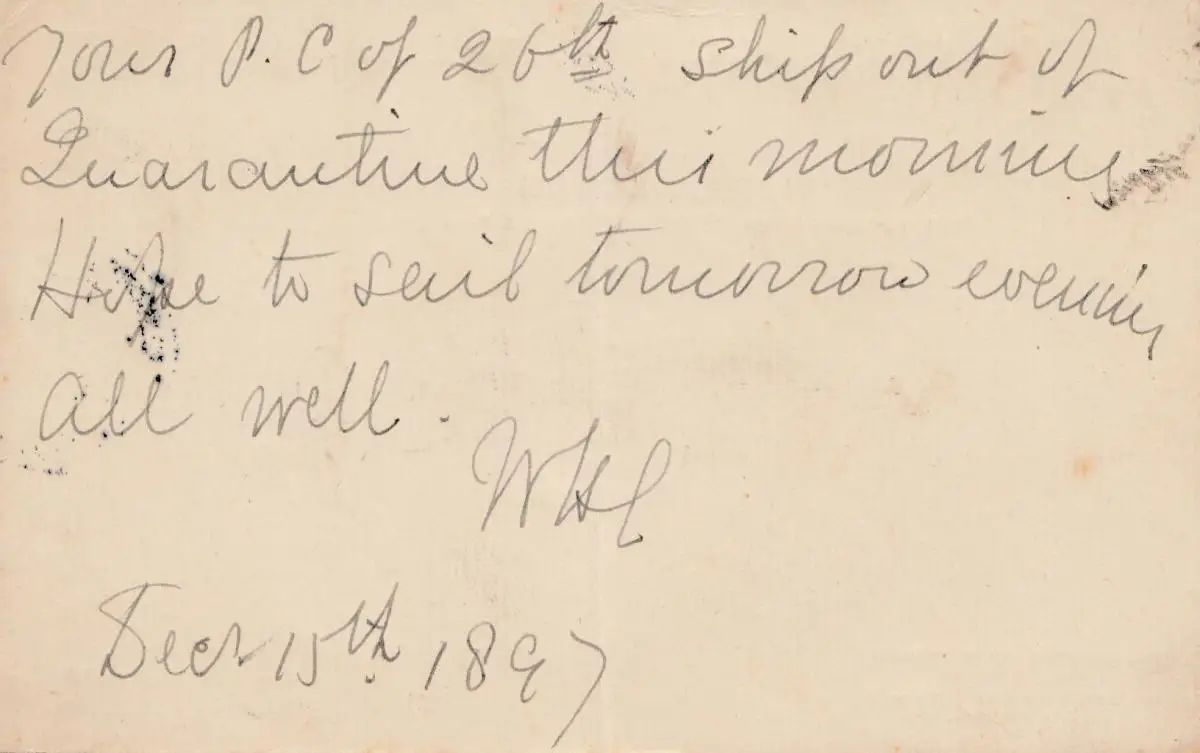 Your P.C of 26th ship out of
Quarantine this morning
Hope to sail tomorrow evening
All well.
WHC
Decr 15th. 1897